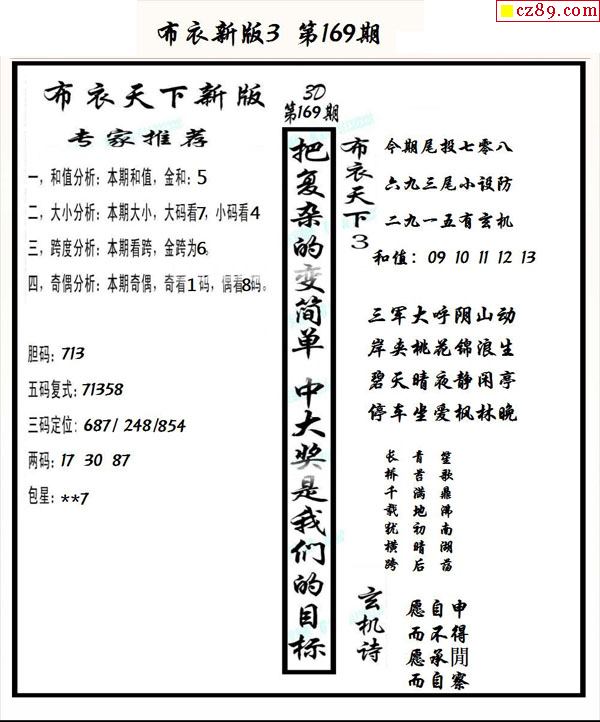 cz89.com
布衣新版3 第169期
布衣天下新版
专家推荐
一，和值分析：本期和值，金和：5
二，大小分析：本期大小，大码看7，小码看4
三，跨度分析：本期看跨，金跨为6。
四，奇偶分析：本期奇偶，奇看1码，偶看8码。
胆码：713
五码复式：71358
三码定位：687/ 248/854
两码：17 30 87
包星：**7
3D
第169期
把复杂的变简单 中大奖是我们的目标
布衣天下3
今期尾投七零八
六九三尾小设防
二九一五有玄机
和值：09 10 11 12 13
三军大呼阴山动
岸夹桃花锦浪生
碧天晴夜静闲亭
停车坐爱枫林晚
笙歌鼎沸南湖荡
青苔满地初晴后
长桥千载犹横跨
玄机诗
愿自申
而不得
愿承閒
而自察